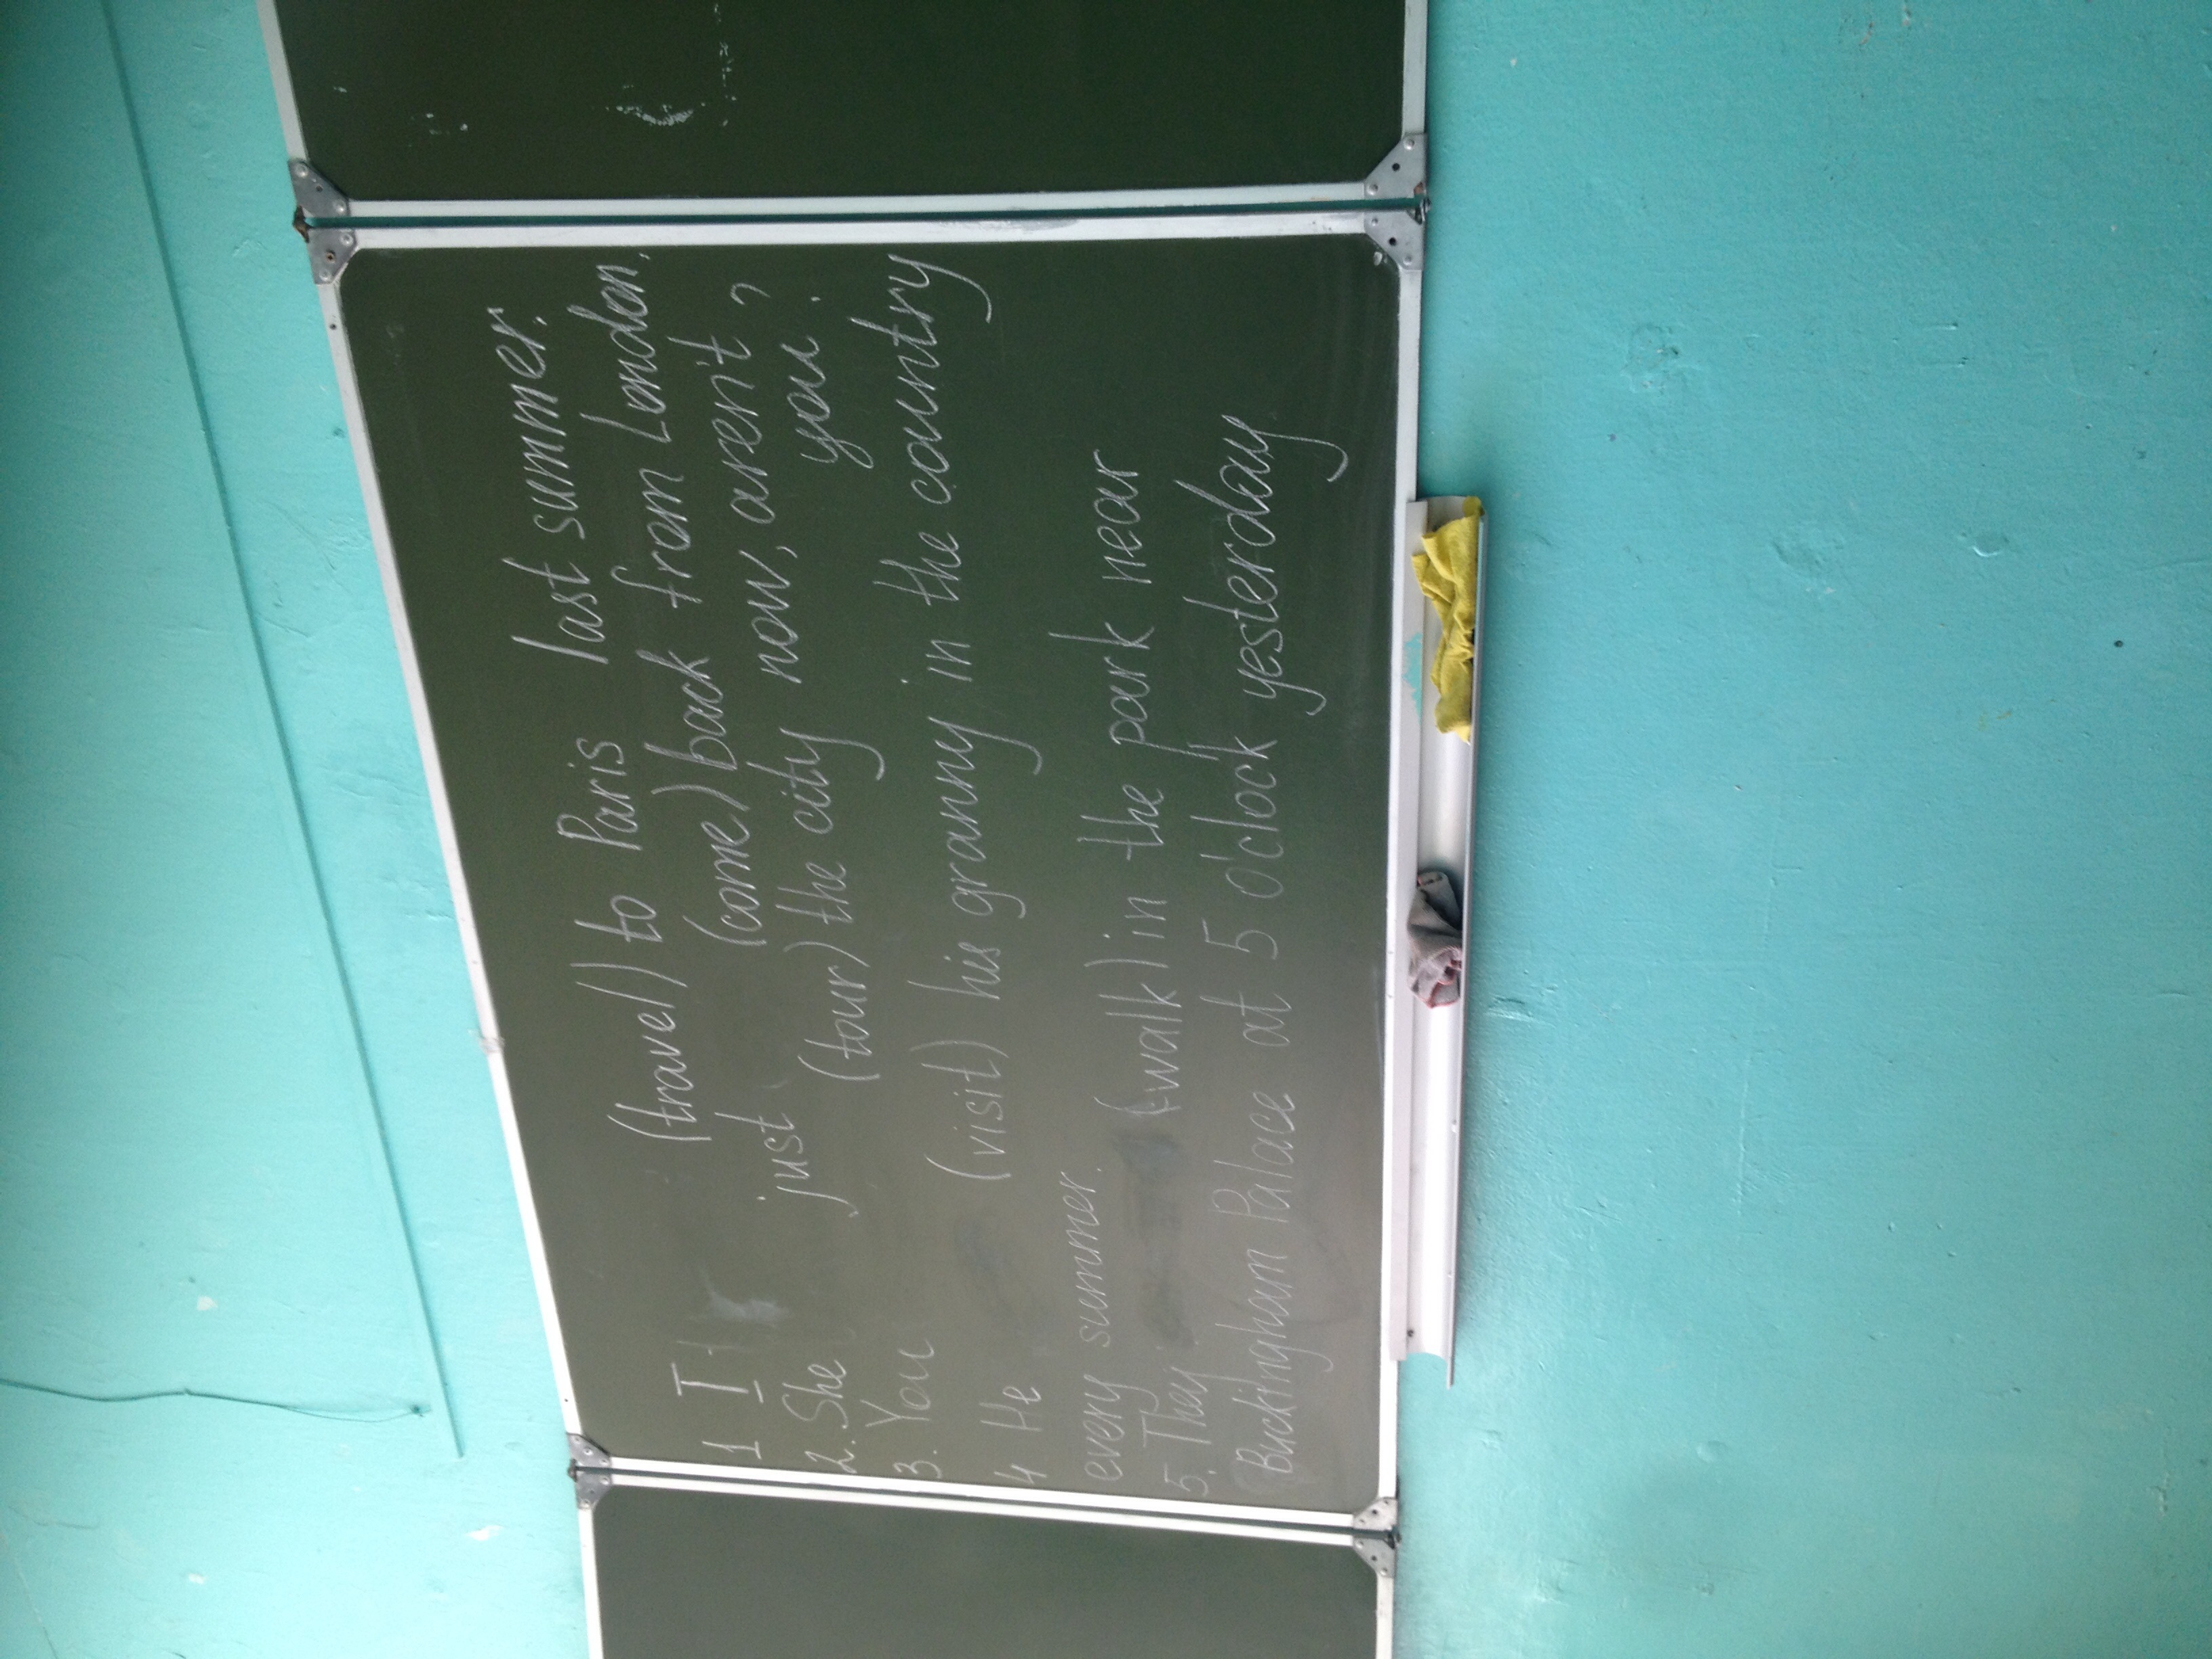 1 I (travel) to Paris last summer.
2. She just (come) back from London.
3. You (tour) the city now, aren't you?
4 He (visit) his granny in the country
every summer.
5. They (walk) in the park near
Buckingham Palace at 5 o'clock yesterday